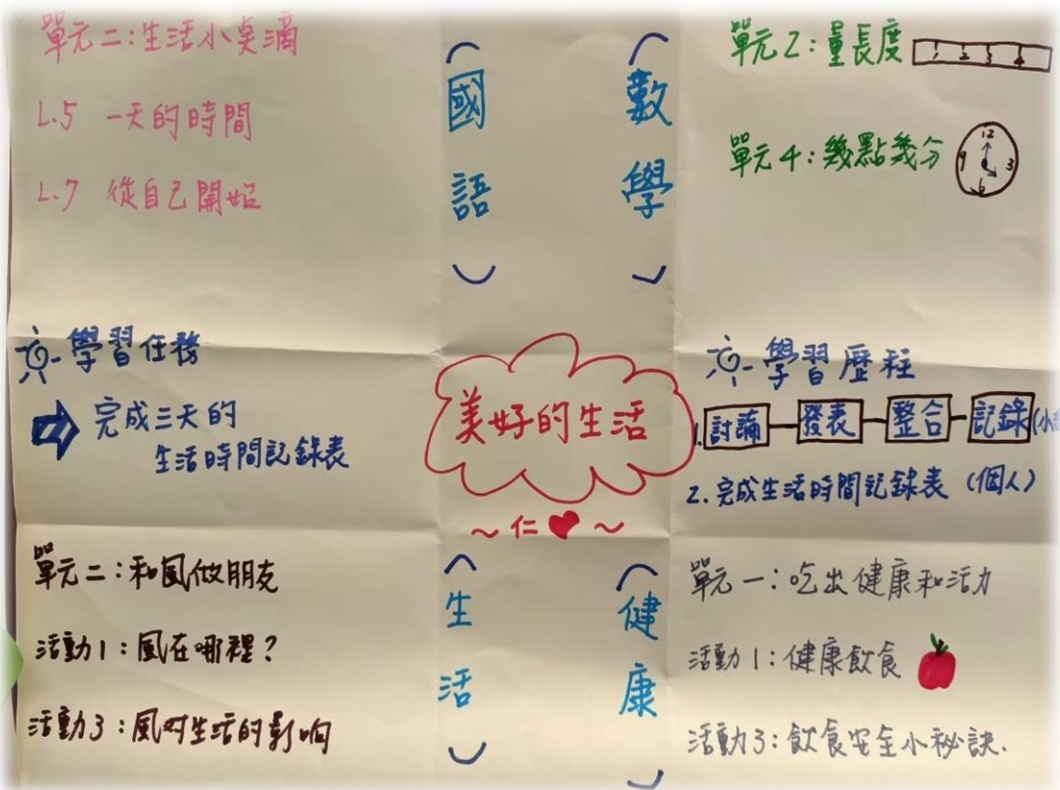 單元二:生活小点滴
L.5 一天的時間
L.7 從自己開始
(國語)
(數學)
單元2:量長度 1 2 3 4
單元4:幾點幾分 12 3 6 9
學習任務
完成三天的
生活時間記錄表
美好的生活
~仁~
學習歷程
1.討論 發表 整合 記錄(小
2.完成生活時間記錄表(個人)
單元二:和風做朋友
活動1:風在哪裡?
活動3:風对生活的影响
(生活)
(健康)
單元一:吃出健康和活力
活動1:健康飲食
活動3:飲食安全小秘訣.